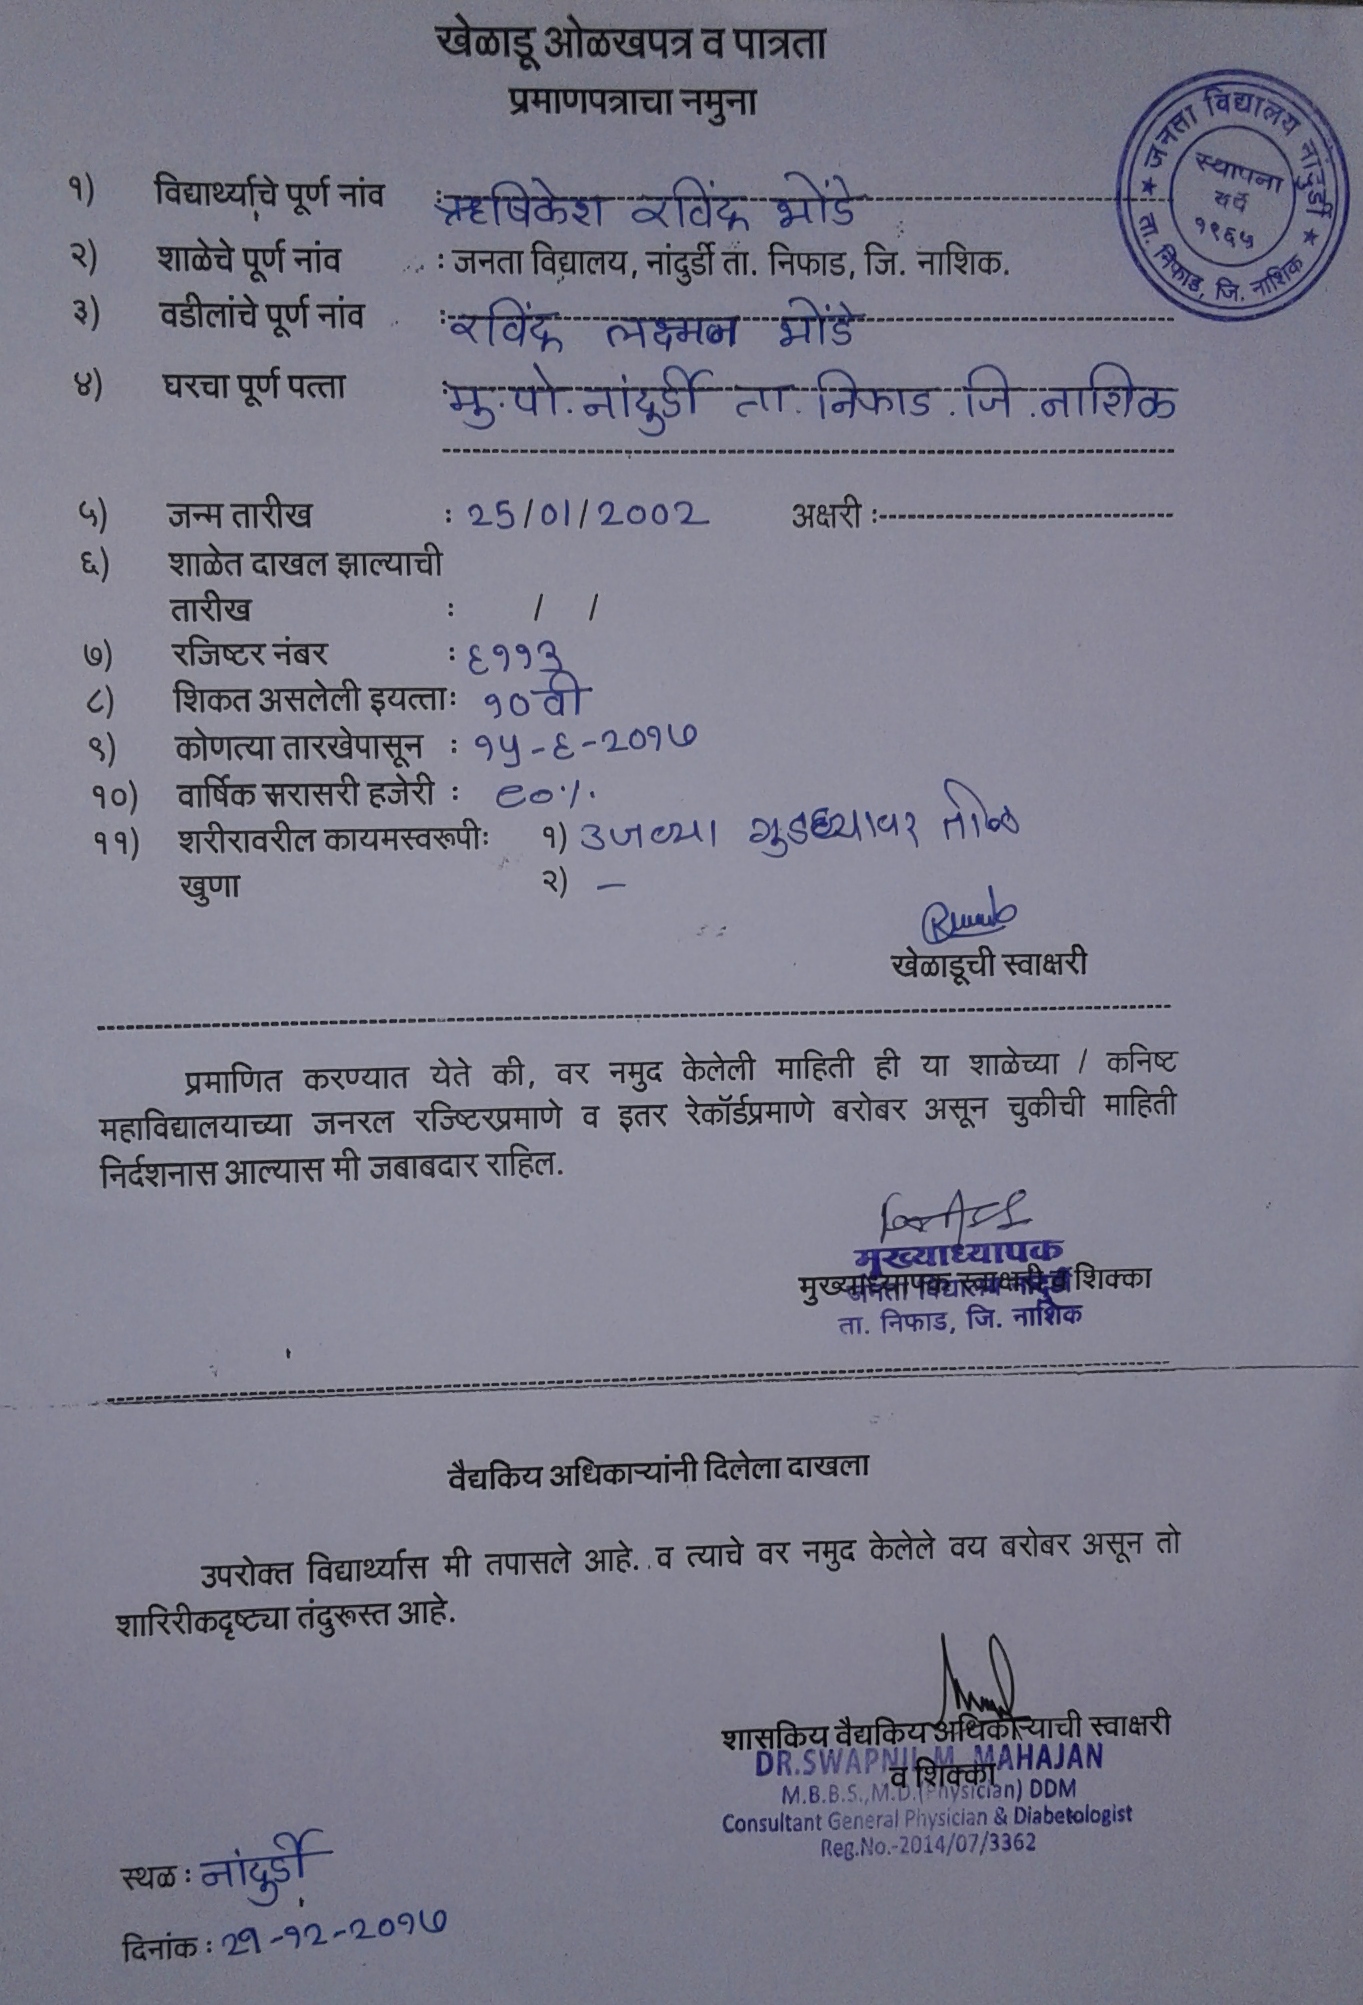 खेळाडू ओळखपत्र व पात्रता
प्रमाणपत्राचा नमुना
जनता विद्यालय नांदुर्डी
ता. निफाड, जि. नाशिक
स्थापना
वर्ष
१९६५
१) विद्यार्थ्याचे पूर्ण नांव : ऋषिकेश रविंद्र भोंडे
२) शाळेचे पूर्ण नांव : जनता विद्यालय, नांदुर्डी ता. निफाड, जि. नाशिक.
३) वडीलांचे पूर्ण नांव : रविंद्र लक्ष्मन भोंडे
४) घरचा पूर्ण पत्ता : मु.पो.नांदुर्डी ता.निफाड.जि.नाशिक
५) जन्म तारीख : 25/01/2002 अक्षरी :
६) शाळेत दाखल झाल्याची
तारीख : / /
७) रजिष्टर नंबर : ६११३
८) शिकत असलेली इयत्ताः १०वी
९) कोणत्या तारखेपासून : १५-६-२०१७
१०) वार्षिक सरासरी हजेरी : ९०%
११) शरीरावरील कायमस्वरूपीः १) उजव्या गुडघ्यावर तीळ
खुणा २) –
खेळाडूची स्वाक्षरी
प्रमाणित करण्यात येते की, वर नमुद केलेली माहिती ही या शाळेच्या / कनिष्ट
महाविद्यालयाच्या जनरल रज्ष्टिरप्रमाणे व इतर रेकॉर्डप्रमाणे बरोबर असून चुकीची माहिती
निर्दशनास आल्यास मी जबाबदार राहिल.
मुख्याध्यापक
मुख्याध्यापक स्वाक्षरी व शिक्का
जनता विद्यालय नांदुर्डी
ता. निफाड, जि. नाशिक
वैद्यकिय अधिकाऱ्यांनी दिलेला दाखला
उपरोक्त विद्यार्थ्यास मी तपासले आहे. व त्याचे वर नमुद केलेले वय बरोबर असून तो
शारिरीकदृष्ट्या तंदुरूस्त आहे.
शासकिय वैद्यकिय अधिकाऱ्याची स्वाक्षरी
व शिक्का
DR.SWAPNIL M. MAHAJAN
M.B.B.S.,M.D.(Physician) DDM
Consultant General Physician & Diabetologist
Reg.No.-2014/07/3362
स्थळ : नांदुर्डी
दिनांक : 29-१२-२०१७